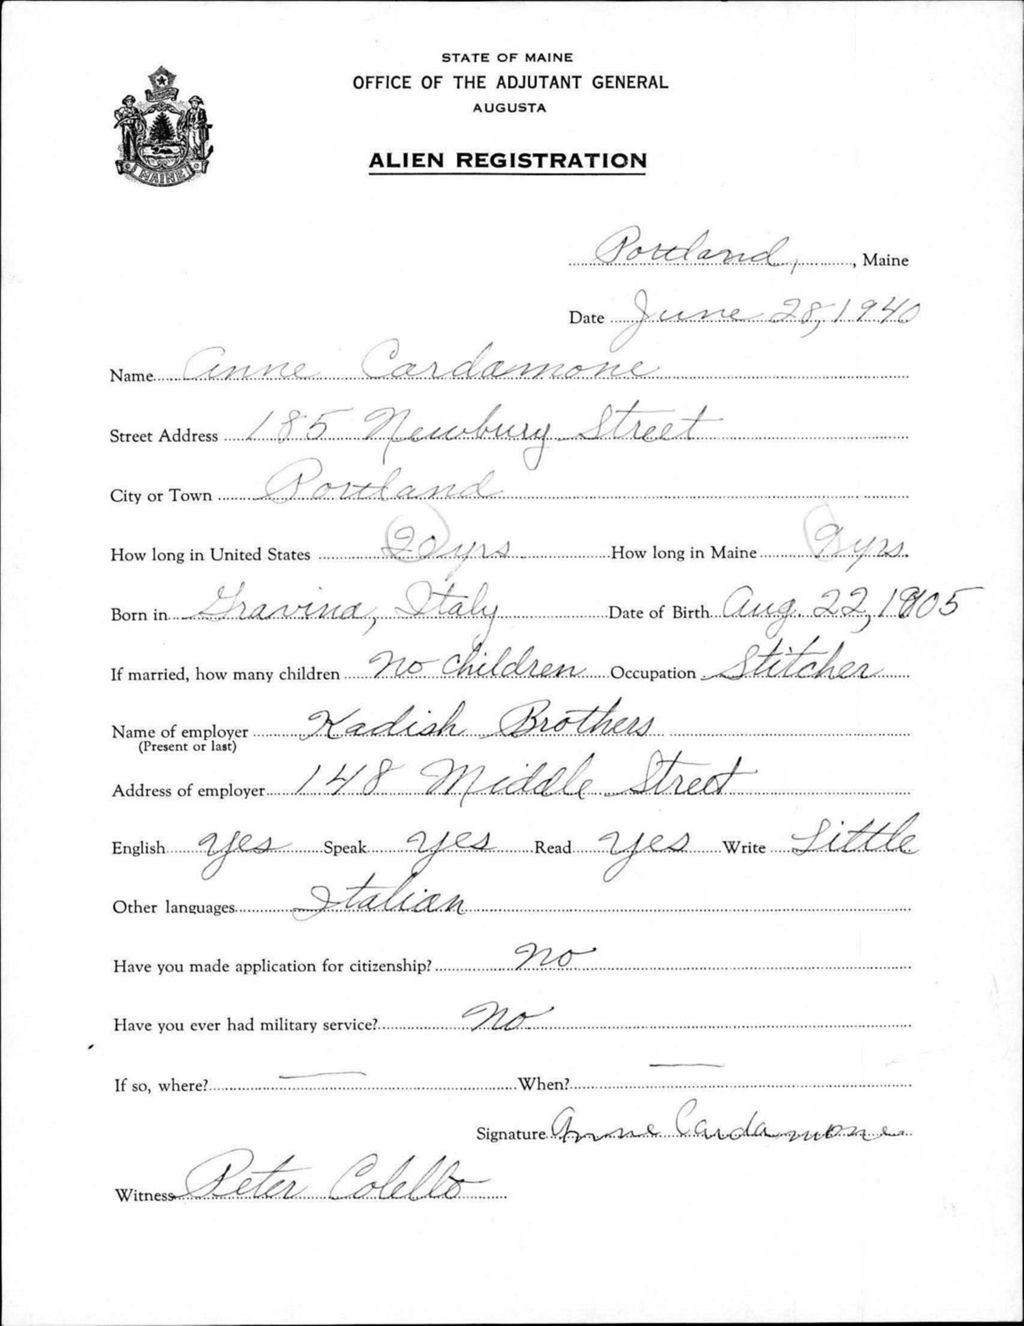 STATE OF MAINE
OFFICE OF THE ADJUTANT GENERAL
AUGUSTA
ALIEN REGISTRATION
MAINE
Portland, , Maine
Date June 28, 1940
Name Anne Cardamone
Street Address 185 Newbury Street
City or Town Portland
How long in United States 20 yrs How long in Maine 9 yrs.
Born in Gravina, Italy Date of Birth Aug. 22, 1905
If married, how many children No children Occupation Stitcher
Name of employer Kadish Brothers
(Present or last)
Address of employer 148 Middle Street
English Yes Speak Yes Read Yes Write Little
Other languages Italian
Have you made application for citizenship? No
Have you ever had military service? No
If so, where? — When? —
Signature Anne Cardamone
Witness Peter Colello